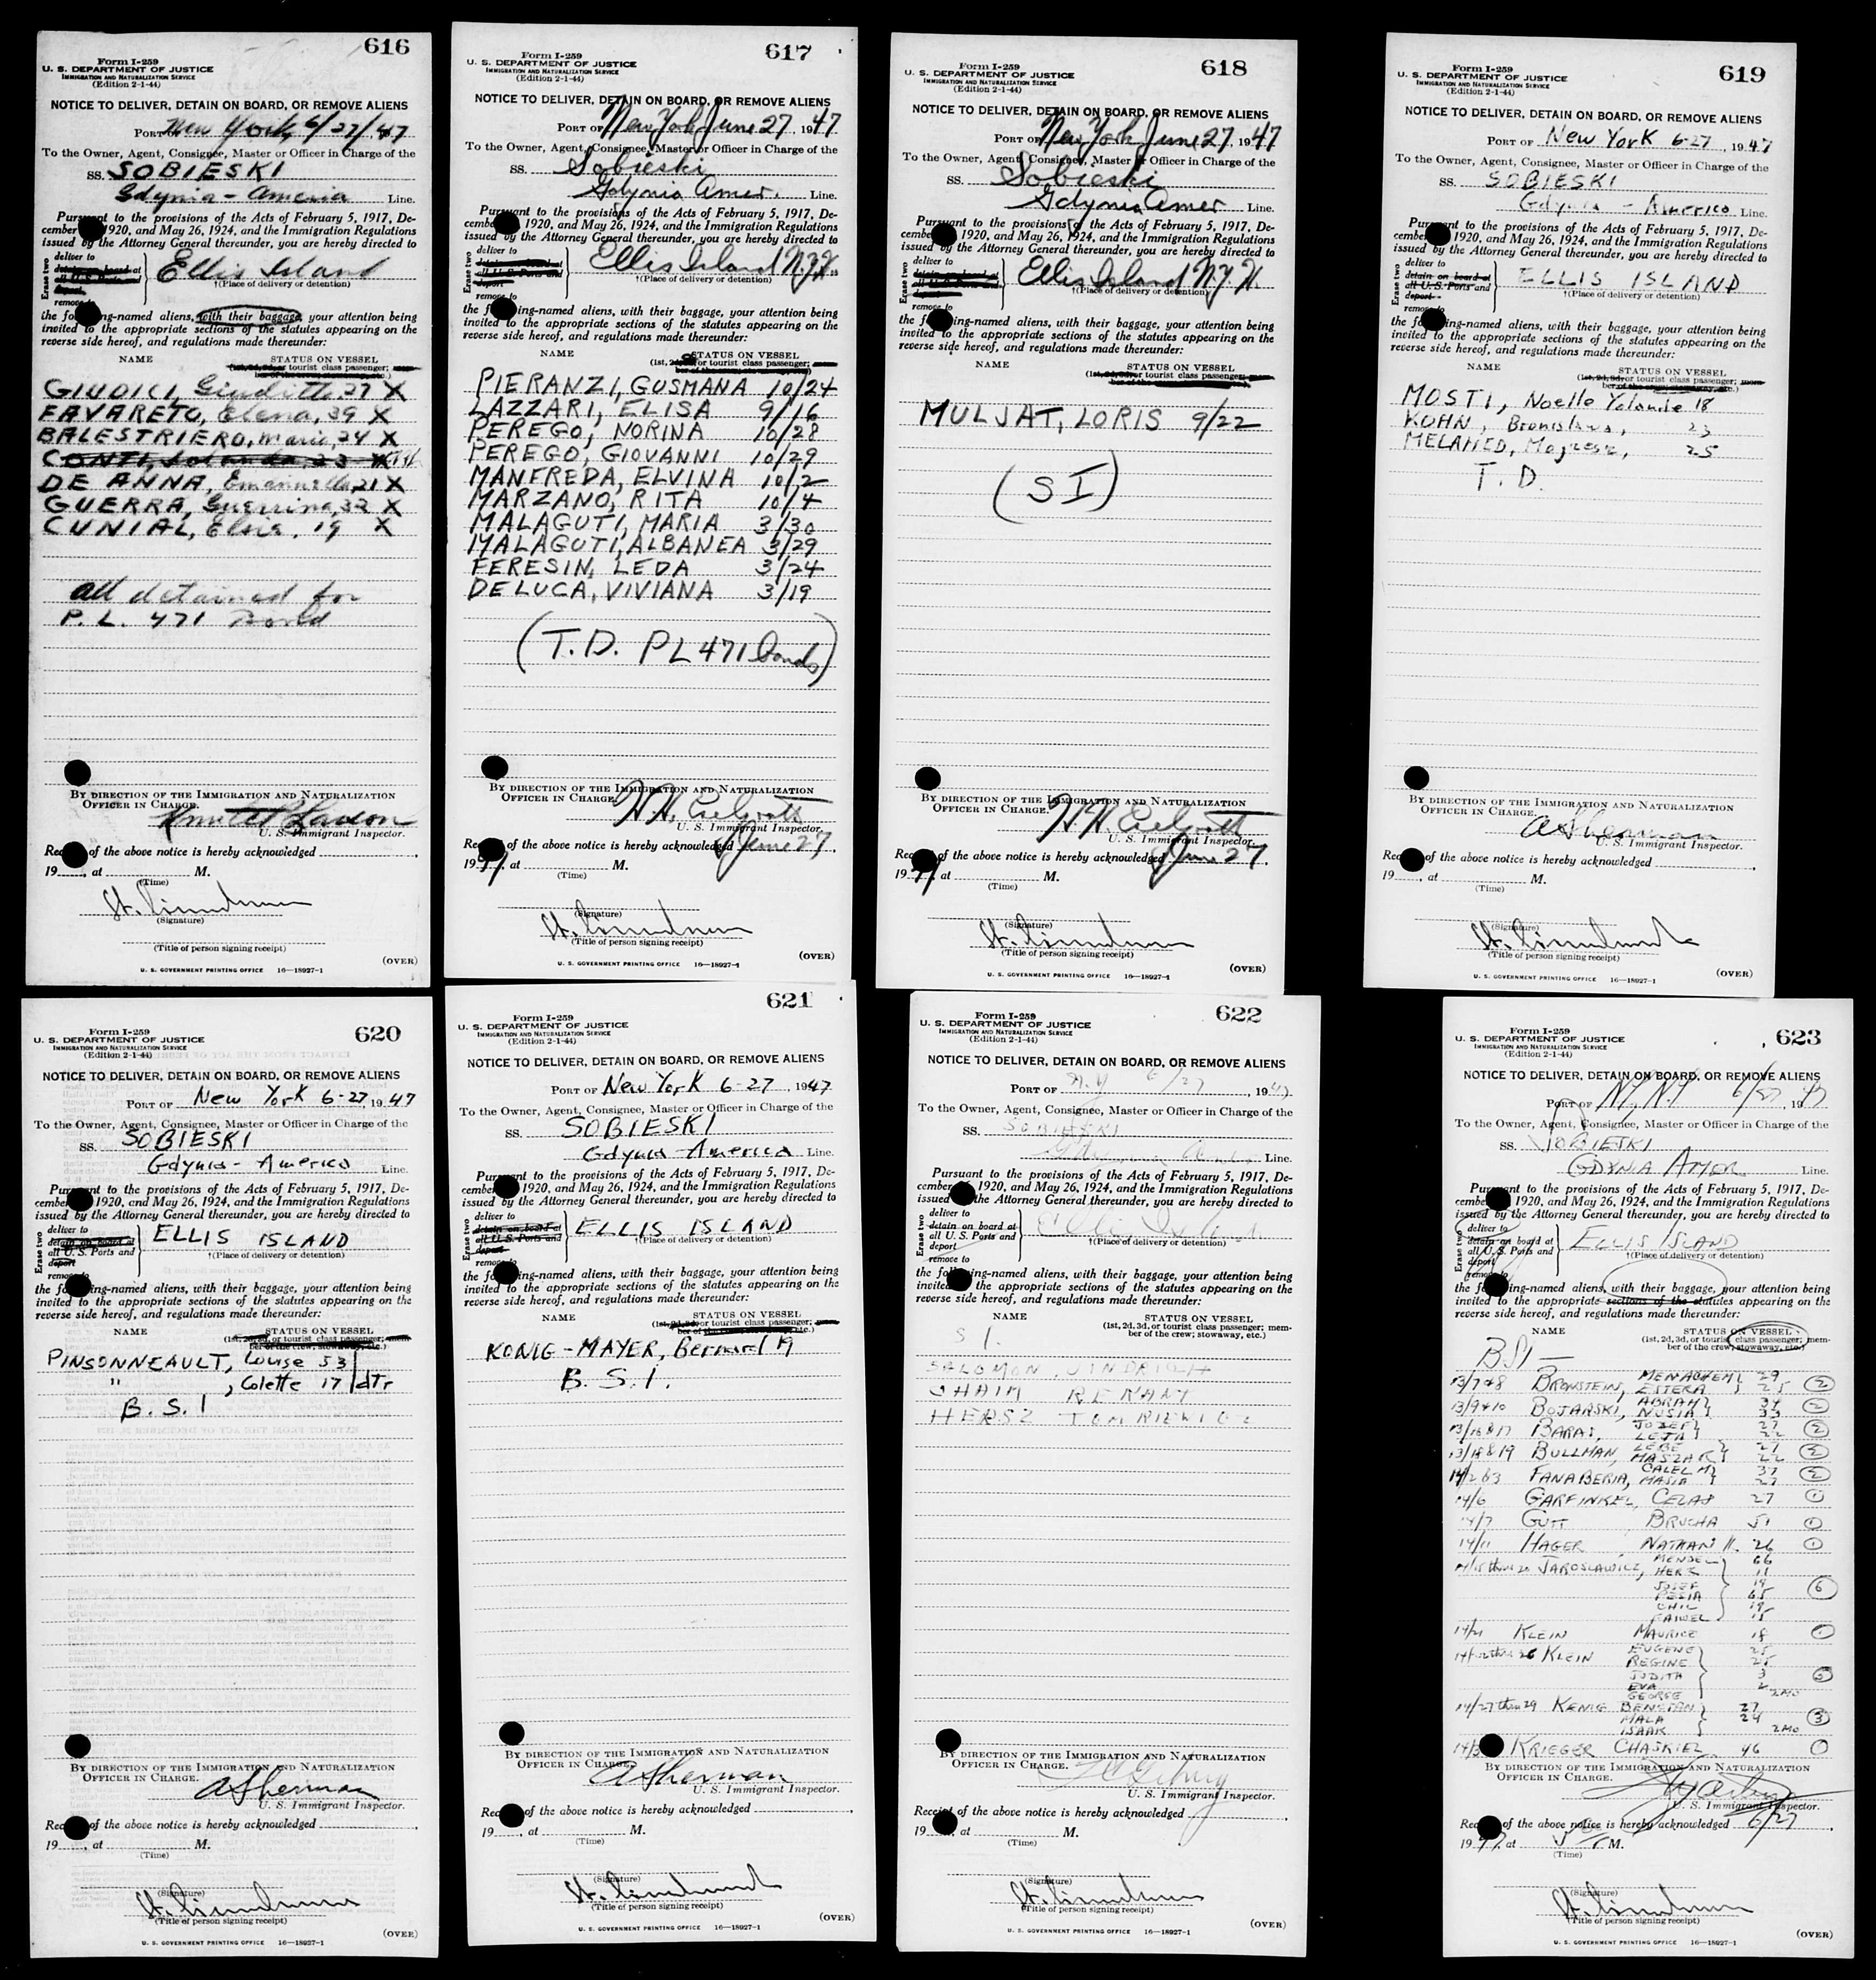 616
Form I-259
U. S. DEPARTMENT OF JUSTICE
IMMIGRATION AND NATURALIZATION SERVICE
(Edition 2-1-44)
NOTICE TO DELIVER, DETAIN ON BOARD, OR REMOVE ALIENS
PORT OF New York, 6/27/47
To the Owner, Agent, Consignee, Master or Officer in Charge of the
SS. SOBIESKI
Gdynia - America Line.
Pursuant to the provisions of the Acts of February 5, 1917, De-
cember 1920, and May 26, 1924, and the Immigration Regulations
issued by the Attorney General thereunder, you are hereby directed to
Erase two
deliver to
detain on board at
all U. S. Ports and
deport
remove to
Ellis Island
†(Place of delivery or detention)
the following-named aliens, with their baggage, your attention being
invited to the appropriate sections of the statutes appearing on the
reverse side hereof, and regulations made thereunder:
NAME STATUS ON VESSEL
(1st, 2d, 3d, or tourist class passenger; mem-
ber of the crew, stowaway, etc.)
GIUDICI, Giuditta, 27 X
FAVARETO, Elena, 39 X
BALESTRIERO, Maria, 24 X
CONTI, Iolanda, 23 X
DE ANNA, Emanuella, 21 X
GUERRA, Guerrina, 32 X
CUNIAL, Elsie, 19 X
all detained for
P. L. 471 Bond
BY DIRECTION OF THE IMMIGRATION AND NATURALIZATION
OFFICER IN CHARGE.
U. S. Immigrant Inspector.
Rec of the above notice is hereby acknowledged
19 , at M.
(Time)
(Signature)
(Title of person signing receipt)
(OVER)
U. S. GOVERNMENT PRINTING OFFICE 16—18927-1
617
Form I-259
U. S. DEPARTMENT OF JUSTICE
IMMIGRATION AND NATURALIZATION SERVICE
(Edition 2-1-44)
NOTICE TO DELIVER, DETAIN ON BOARD, OR REMOVE ALIENS
PORT OF New York June 27, 1947
To the Owner, Agent, Consignee, Master or Officer in Charge of the
SS. Sobieski
Gdynia Amer. Line.
Pursuant to the provisions of the Acts of February 5, 1917, De-
cember 1920, and May 26, 1924, and the Immigration Regulations
issued by the Attorney General thereunder, you are hereby directed to
Erase two
deliver to
detain on board at
all U. S. Ports and
remove to
Ellis Island N.Y.H.
the following-named aliens, with their baggage, your attention being
invited to the appropriate sections of the statutes appearing on the
reverse side hereof, and regulations made thereunder:
NAME STATUS ON VESSEL
(1st, 2d, or tourist class passenger;
PIERANZI, GUSMANA 10/24
LAZZARI, ELISA 9/16
PEREGO, NORINA 10/28
PEREGO, GIOVANNI 10/29
MANFREDA, ELVINA 10/2
MARZANO, RITA 10/4
MALAGUTI, MARIA 3/30
MALAGUTI, ALBANEA 3/29
FERESIN, LEDA 3/24
DE LUCA, VIVIANA 3/19
(T.D. PL 471 bonds)
BY DIRECTION OF THE IMMIGRATION AND NATURALIZATION
OFFICER IN CHARGE.
U. S. Immigrant Inspector.
Rec of the above notice is hereby acknowledged June 27
1947, at M.
(Time)
(Signature)
(Title of person signing receipt)
(OVER)
U. S. GOVERNMENT PRINTING OFFICE 16—18927-1
618
Form I-259
U. S. DEPARTMENT OF JUSTICE
IMMIGRATION AND NATURALIZATION SERVICE
(Edition 2-1-44)
NOTICE TO DELIVER, DETAIN ON BOARD, OR REMOVE ALIENS
PORT OF New York June 27, 1947
To the Owner, Agent, Consignee, Master or Officer in Charge of the
SS. Sobieski
Gdynia Amer Line.
Pursuant to the provisions of the Acts of February 5, 1917, De-
cember 1920, and May 26, 1924, and the Immigration Regulations
issued by the Attorney General thereunder, you are hereby directed to
Erase two
deliver to
detain on board at
all U. S. Ports and
remove to
Ellis Island N.Y.H.
†(Place of delivery or detention)
the following-named aliens, with their baggage, your attention being
invited to the appropriate sections of the statutes appearing on the
reverse side hereof, and regulations made thereunder:
NAME STATUS ON VESSEL
(1st, 2d, 3d, or tourist class passenger;
MULJAT, LORIS 9/22
(SI)
BY DIRECTION OF THE IMMIGRATION AND NATURALIZATION
OFFICER IN CHARGE.
U. S. Immigrant Inspector.
Rec of the above notice is hereby acknowledged June 27.
1947, at M.
(Time)
(Signature)
(Title of person signing receipt)
(OVER)
U. S. GOVERNMENT PRINTING OFFICE 16—18927-1
619
Form I-259
U. S. DEPARTMENT OF JUSTICE
IMMIGRATION AND NATURALIZATION SERVICE
(Edition 2-1-44)
NOTICE TO DELIVER, DETAIN ON BOARD, OR REMOVE ALIENS
PORT OF New York 6-27, 1947
To the Owner, Agent, Consignee, Master or Officer in Charge of the
SS. SOBIESKI
Gdynia - America Line.
Pursuant to the provisions of the Acts of February 5, 1917, De-
cember 1920, and May 26, 1924, and the Immigration Regulations
issued by the Attorney General thereunder, you are hereby directed to
Erase two
deliver to
detain on board at
all U. S. Ports and
deport
remove to
ELLIS ISLAND
†(Place of delivery or detention)
the following-named aliens, with their baggage, your attention being
invited to the appropriate sections of the statutes appearing on the
reverse side hereof, and regulations made thereunder:
NAME STATUS ON VESSEL
(1st, 2d, 3d, or tourist class passenger; mem-
ber of the crew, stowaway, etc.)
MOSTI, Noelle Yolande 18
KOHN, Bronislawa, 23
MELAMED, 25
T. D.
BY DIRECTION OF THE IMMIGRATION AND NATURALIZATION
OFFICER IN CHARGE.
A Sherman
U. S. Immigrant Inspector.
Rec of the above notice is hereby acknowledged
19 , at M.
(Time)
(Signature)
(Title of person signing receipt)
(OVER)
U. S. GOVERNMENT PRINTING OFFICE 16—18927-1
620
Form I-259
U. S. DEPARTMENT OF JUSTICE
IMMIGRATION AND NATURALIZATION SERVICE
(Edition 2-1-44)
NOTICE TO DELIVER, DETAIN ON BOARD, OR REMOVE ALIENS
PORT OF New York 6-27, 1947
To the Owner, Agent, Consignee, Master or Officer in Charge of the
SS. SOBIESKI
Gdynia - America Line.
Pursuant to the provisions of the Acts of February 5, 1917, De-
cember 1920, and May 26, 1924, and the Immigration Regulations
issued by the Attorney General thereunder, you are hereby directed to
Erase two
deliver to
detain on board at
all U. S. Ports and
deport
remove to
ELLIS ISLAND
†(Place of delivery or detention)
the following-named aliens, with their baggage, your attention being
invited to the appropriate sections of the statutes appearing on the
reverse side hereof, and regulations made thereunder:
NAME STATUS ON VESSEL
(1st, 2d, 3d, or tourist class passenger; mem-
ber of the crew, stowaway, etc.)
PINSONNEAULT, Louise 53
" , Colette 17 dtr
B. S. I
BY DIRECTION OF THE IMMIGRATION AND NATURALIZATION
OFFICER IN CHARGE.
A Sherman
U. S. Immigrant Inspector.
Rec of the above notice is hereby acknowledged
19 , at M.
(Time)
(Signature)
(Title of person signing receipt)
(OVER)
U. S. GOVERNMENT PRINTING OFFICE 16—18927-1
621
Form I-259
U. S. DEPARTMENT OF JUSTICE
IMMIGRATION AND NATURALIZATION SERVICE
(Edition 2-1-44)
NOTICE TO DELIVER, DETAIN ON BOARD, OR REMOVE ALIENS
PORT OF New York 6-27, 1947
To the Owner, Agent, Consignee, Master or Officer in Charge of the
SS. SOBIESKI
Gdynia - America Line.
Pursuant to the provisions of the Acts of February 5, 1917, De-
cember 1920, and May 26, 1924, and the Immigration Regulations
issued by the Attorney General thereunder, you are hereby directed to
Erase two
deliver to
detain on board at
all U. S. Ports and
deport
remove to
ELLIS ISLAND
†(Place of delivery or detention)
the following-named aliens, with their baggage, your attention being
invited to the appropriate sections of the statutes appearing on the
reverse side hereof, and regulations made thereunder:
NAME STATUS ON VESSEL
(1st, 2d, 3d, or tourist class passenger; mem-
ber of the crew, stowaway, etc.)
KONIG - MAYER, Bernard 19
B. S. I.
BY DIRECTION OF THE IMMIGRATION AND NATURALIZATION
OFFICER IN CHARGE.
A Sherman
U. S. Immigrant Inspector.
Rec of the above notice is hereby acknowledged
19 , at M.
(Time)
(Signature)
(Title of person signing receipt)
(OVER)
U. S. GOVERNMENT PRINTING OFFICE 16—18927-1
622
Form I-259
U. S. DEPARTMENT OF JUSTICE
IMMIGRATION AND NATURALIZATION SERVICE
(Edition 2-1-44)
NOTICE TO DELIVER, DETAIN ON BOARD, OR REMOVE ALIENS
PORT OF N.Y 6/27, 1947
To the Owner, Agent, Consignee, Master or Officer in Charge of the
SS. SOBIESKI
Line.
Pursuant to the provisions of the Acts of February 5, 1917, De-
cember 1920, and May 26, 1924, and the Immigration Regulations
issued by the Attorney General thereunder, you are hereby directed to
Erase two
deliver to
detain on board at
all U. S. Ports and
deport
remove to
Ellis Island
†(Place of delivery or detention)
the following-named aliens, with their baggage, your attention being
invited to the appropriate sections of the statutes appearing on the
reverse side hereof, and regulations made thereunder:
NAME STATUS ON VESSEL
(1st, 2d, 3d, or tourist class passenger; mem-
ber of the crew, stowaway, etc.)
S I.
SALOMON JINDRICH
CHAIM RENANT
HERSZ
BY DIRECTION OF THE IMMIGRATION AND NATURALIZATION
OFFICER IN CHARGE.
U. S. Immigrant Inspector.
Receipt of the above notice is hereby acknowledged
19 , at M.
(Time)
(Signature)
(Title of person signing receipt)
(OVER)
U. S. GOVERNMENT PRINTING OFFICE 16—18927-1
623
Form I-259
U. S. DEPARTMENT OF JUSTICE
IMMIGRATION AND NATURALIZATION SERVICE
(Edition 2-1-44)
NOTICE TO DELIVER, DETAIN ON BOARD, OR REMOVE ALIENS
PORT OF NY, NY 6/27 1947
To the Owner, Agent, Consignee, Master or Officer in Charge of the
SS. SOBIESKI
GDYNIA AMER Line.
Pursuant to the provisions of the Acts of February 5, 1917, De-
cember 1920, and May 26, 1924, and the Immigration Regulations
issued by the Attorney General thereunder, you are hereby directed to
Erase two
deliver to
detain on board at
all U. S. Ports and
deport
remove to
ELLIS ISLAND
†(Place of delivery or detention)
the following-named aliens, with their baggage, your attention being
invited to the appropriate sections of the statutes appearing on the
reverse side hereof, and regulations made thereunder:
NAME STATUS ON VESSEL
(1st, 2d, 3d, or tourist class passenger; mem-
ber of the crew, stowaway, etc.)
BSI —
13/7+8 BRONSTEIN, MENACHEM 29
ESTERA 25 2
13/9+10 BOJARSKI, ABRAM 34
NUSIA 33 2
13/16&17 BARAS, JOZEF 27
LEJA 22 2
13/18&19 BULLMAN, LEBE 27
MASZA 22 2
14/2&3 FANABERIA, CALEL M 37
MASIA 27 2
14/6 GARFINKEL, CELA 27 1
14/7 GUTT BRUCHA 51 1
14/11 HAGER NATHAN H. 26 1
14/15 thru 20 JAROSLAWICZ, MENDEL 66
HERZ
JOZEF 19
PESIA 65 6
CHIL 19
FAIWEL 15
14/21 KLEIN MAURICE 18 1
14/22 thru 26 KLEIN EUGENE 25
REGINE 25
JUDITA 3 5
EVA 2
GEORGE 2 MO
14/27 thru 29 KENIG BENCIAN 27
MALA 24 3
ISAAK 2 MO
14/3 KRIEGER CHASKIEL 46 1
BY DIRECTION OF THE IMMIGRATION AND NATURALIZATION
OFFICER IN CHARGE.
U. S. Immigrant Inspector.
Rec of the above notice is hereby acknowledged 6/27
1947, at M.
(Time)
(Signature)
(Title of person signing receipt)
(OVER)
U. S. GOVERNMENT PRINTING OFFICE 16—18927-1